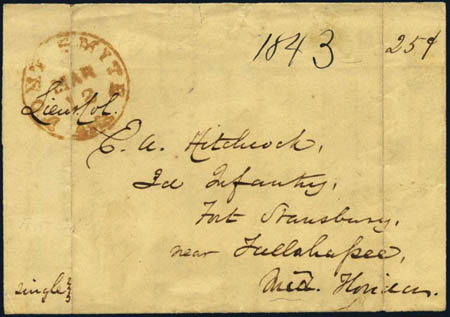 1843 25¢
MAR
12
Lieut Col.
E. A. Hitchcock,
3d Infantry,
Fort Stansbury,
near Tallahassee,
Florida.
single